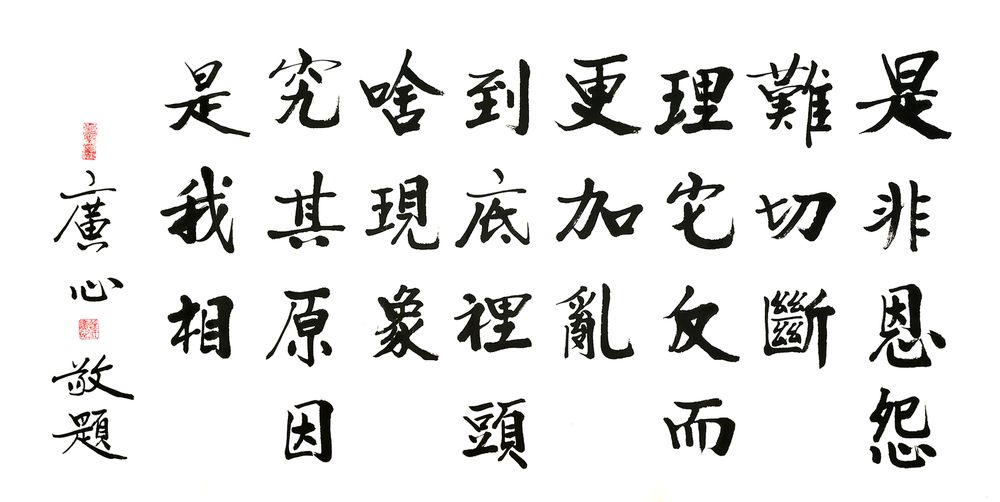 是非恩怨
難切斷
理它反而
更加亂
到底裡頭
啥現象
究其原因
是我相
廣心敬題